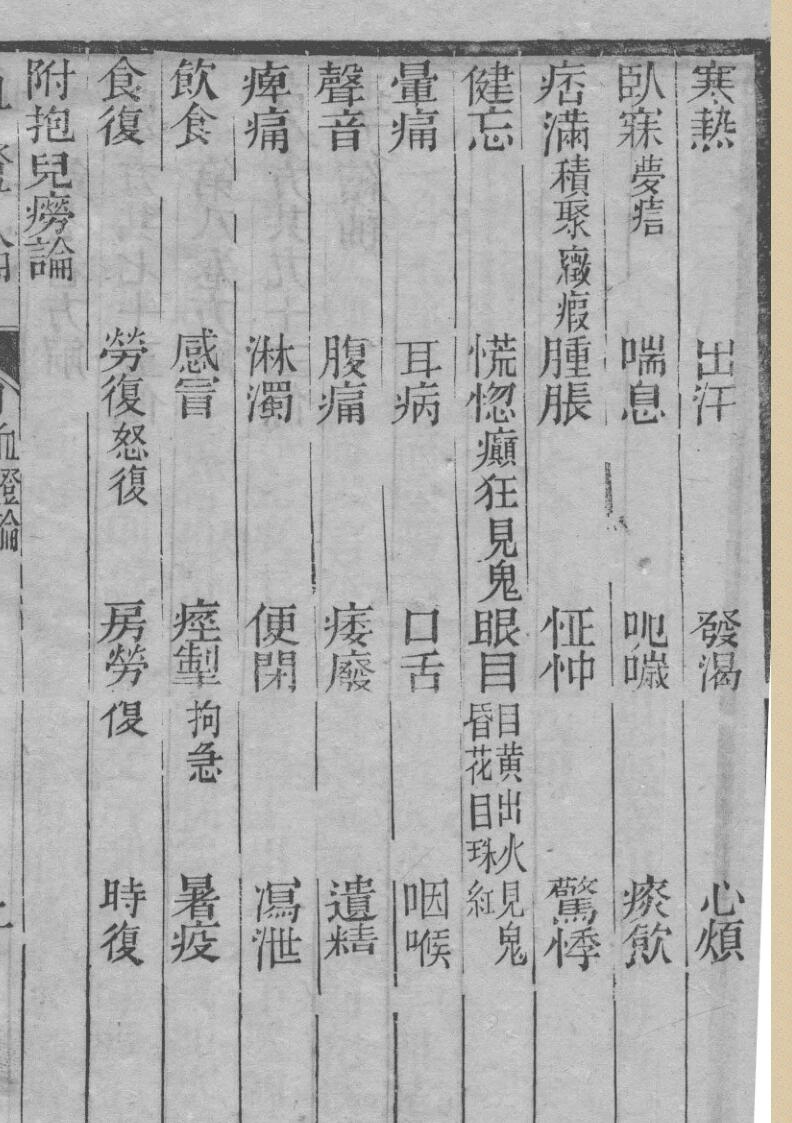 寒熱 出汗 發渴 心煩
臥寐夢寤 喘息 呃噦 痰飲
痞滿積聚癥瘕 腫脹 怔忡 驚悸
健忘 慌惚癲狂見鬼 眼目目黄出火見鬼昏花目珠紅
暈痛 耳病 口舌 咽喉
聲音 腹痛 痿廢 遺精
痺痛 淋濁 便閉 瀉泄
飲食 感冒 痙掣拘急 暑疫
食復 勞復怒復 房勞復 時復
附抱兒癆論
血證論